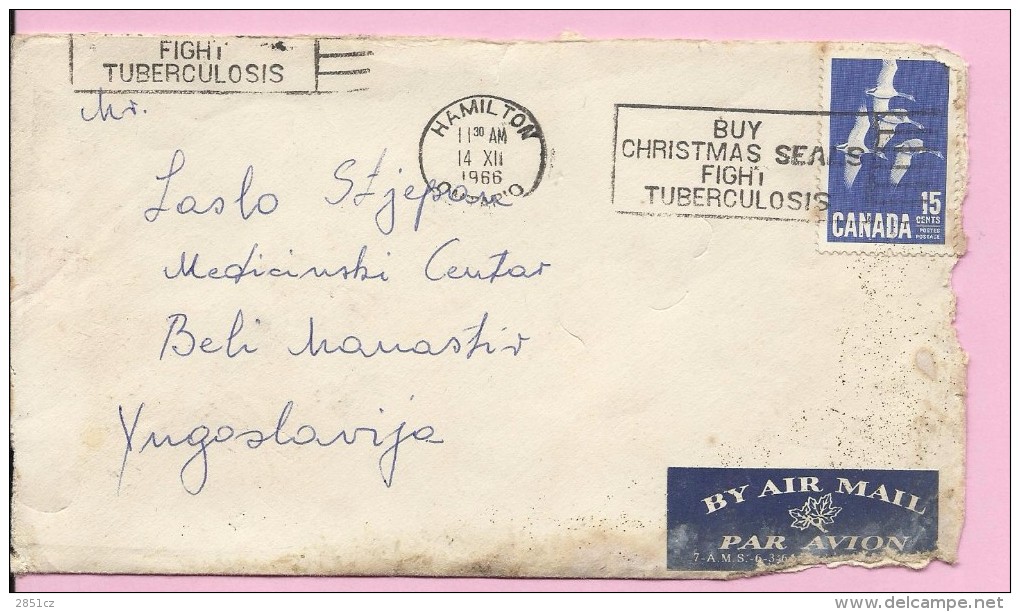 FIGHT
TUBERCULOSIS
Mr.
HAMILTON
11 30 AM
14 XII
1966
BUY
CHRISTMAS SEALS
FIGHT
TUBERCULOSIS
15
CENTS
CANADA
POSTES
POSTAGE
Laslo Stjepan
Medicinski Centar
Beli Manastir
Yugoslavija
BY AIR MAIL
PAR AVION
7-A.M.S.-6-3-64
2851cz